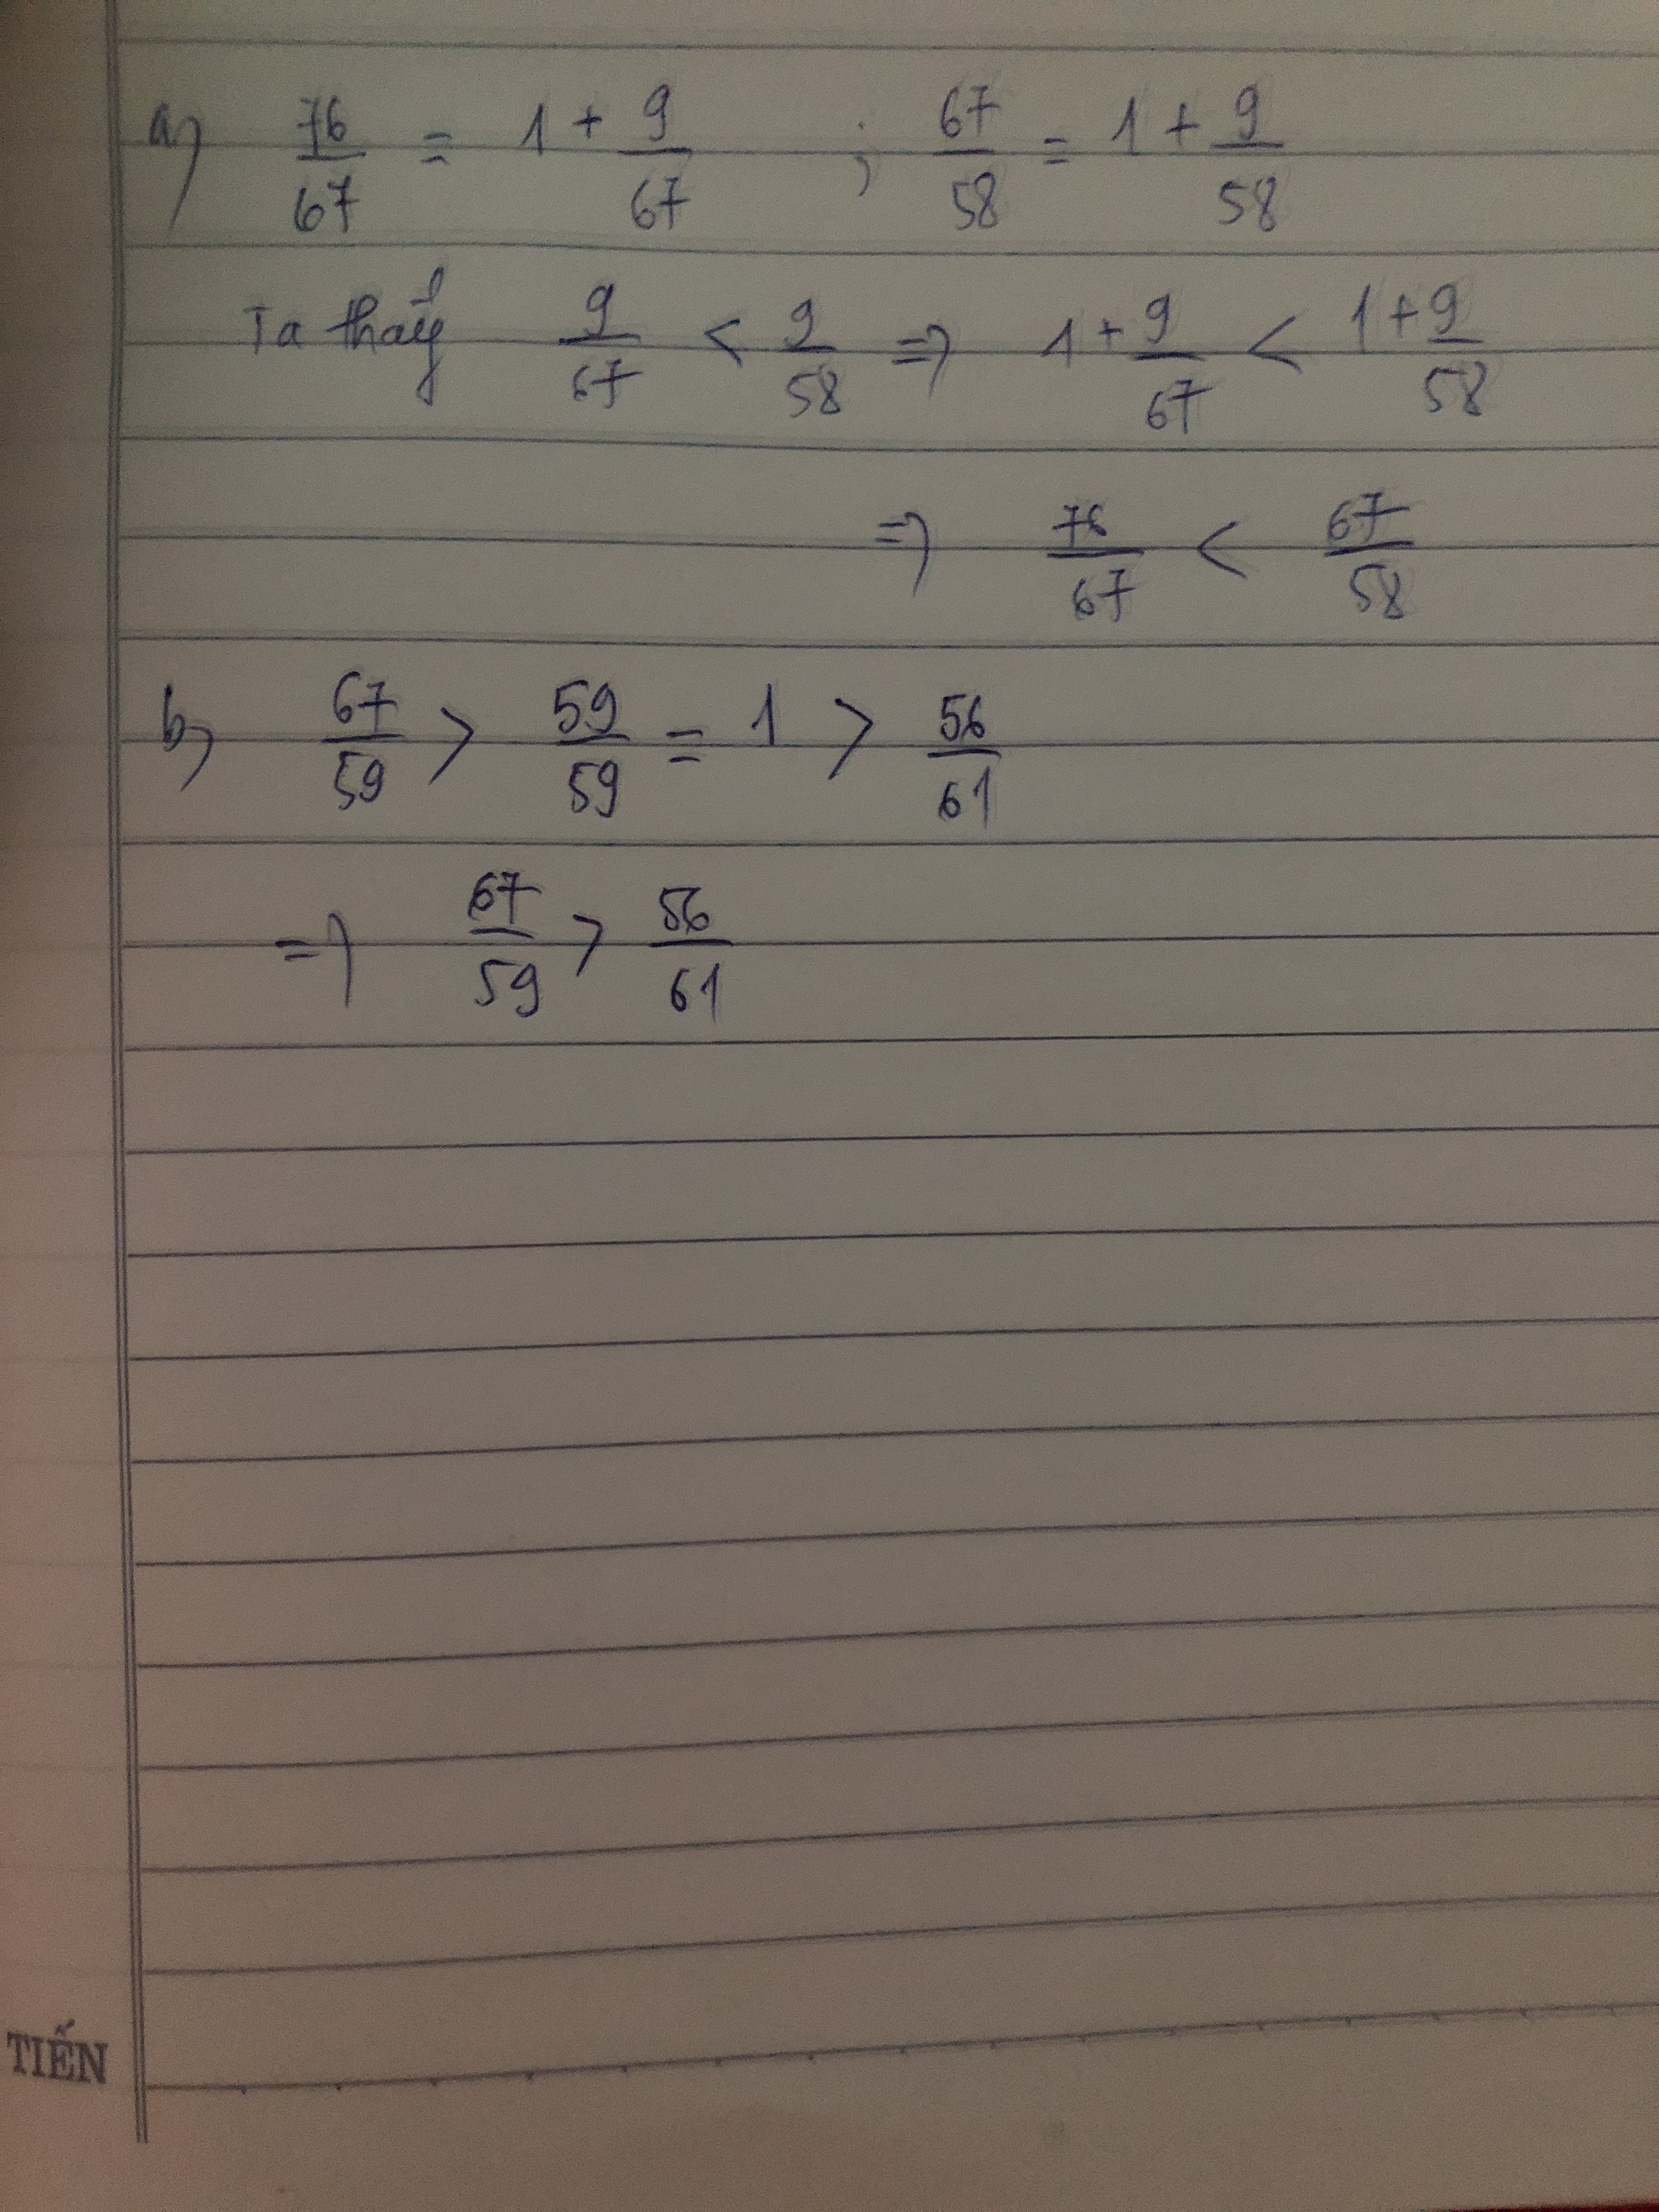 a) 76/67 = 1 + 9/67 ; 67/58 = 1 + 9/58
Ta thấy 9/67 < 9/58 => 1 + 9/67 < 1 + 9/58
=> 76/67 < 67/58
b) 67/59 > 59/59 = 1 > 56/61
=> 67/59 > 56/61
TIẾN